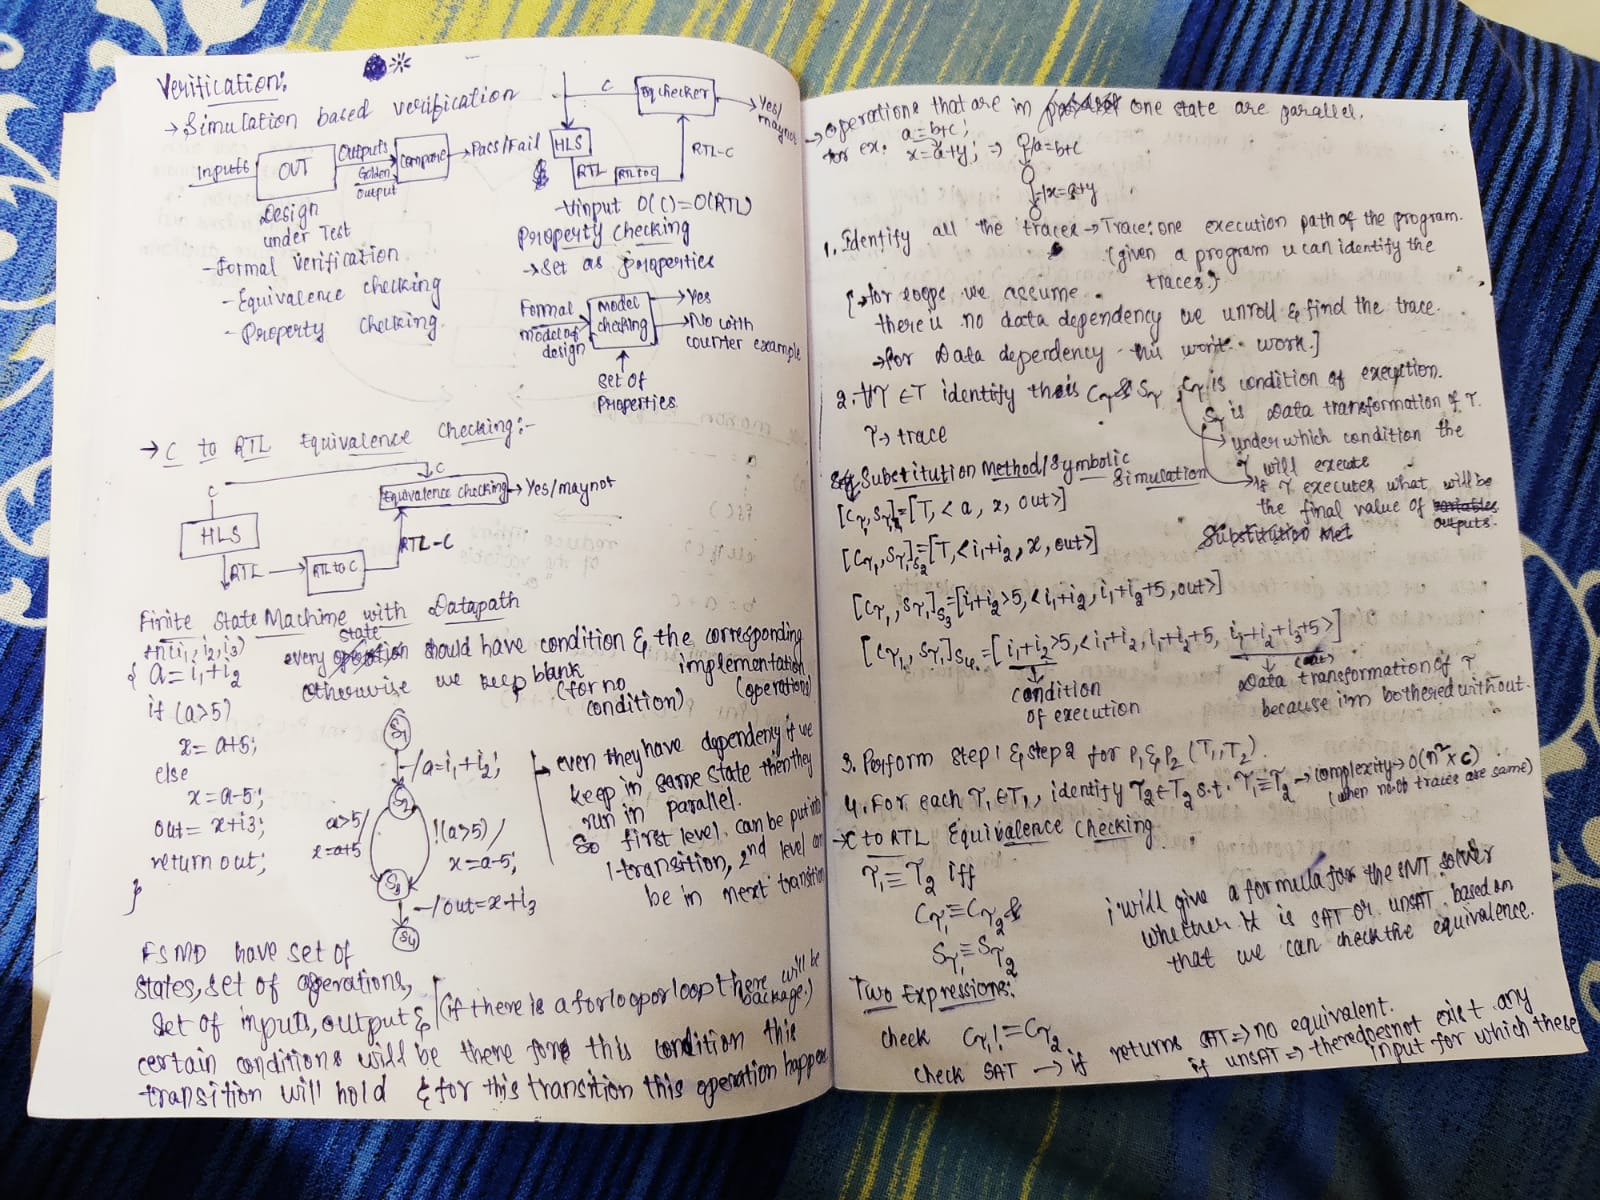 Verification:
→ Simulation based verification
Inputs
OUT
Outputs
Golden
output
Compare
→ Pass/Fail
Design
under Test
- Formal verification
- Equivalence checking
- Property checking.
C
Eq checker
→ Yes/
maynot
HLS
RTL
RTL to C
RTL-C
∀input O(C) = O(RTL)
Property Checking
→ Set as properties
Formal
model of
design
Model
checking
→ Yes
→ No with
counter example
Set Of
Properties
→ C to RTL Equivalence Checking:-
C
C
Equivalence checking
→ Yes/maynot
HLS
RTL
RTL to C
RTL-C
Finite State Machine with Datapath
fn(i1, i2, i3)
{ a = i1+i2
if (a>5)
x = a+5;
else
x = a-5;
out = x+i3;
return out;
}
every state should have condition & the corresponding
implementation
(operations)
otherwise we keep blank
(for no
condition)
S1
-/a=i1+i2;
S2
a>5/
x=a+5
!(a>5)/
x=a-5;
S3
-/out=x+i3
S4
→ even they have dependency if we
keep in same state then they
run in parallel.
So first level can be put into
1 transition, 2nd level can
be in next transition
FSMD have set of
states, set of operations,
set of inputs, output &
(if there is a for loop or loop there will be
backage.)
certain conditions will be there for this condition this
transition will hold & for this transition this operation happens
→ operations that are in one state are parallel.
for ex. a=b+c;
x=a+y; ⇒
-/a=b+c
-/x=a+y
1. Identify all the traces → Trace: one execution path of the program.
(given a program u can identify the
traces.)
[→ for loops we assume
there is no data dependency we unroll & find the trace.
→ for Data dependency this wont work.]
2. ∀τ ∈ T identify this Cτ & Sτ, Cτ is condition of execution.
Sτ is Data transformation of τ.
τ → trace
→ under which condition the
τ will execute
→ If τ executes what will be
the final value of variables
outputs.
Substitution Method/Symbolic Simulation
Substitution Met
[Cτ1, Sτ1]=[T, < a, x, out>]
[Cτ1, Sτ1]S2=[T, <i1+i2, x, out>]
[Cτ1, Sτ1]S3=[i1+i2>5, <i1+i2, i1+i2+5, out>]
[Cτ1, Sτ1]S4=[i1+i2>5, <i1+i2, i1+i2+5, i1+i2+i3+5>]
(out)
condition
of execution
Data transformation of τ
because i'm bothered with out.
3. Perform step 1 & step 2 for P1 & P2 (T1, T2).
4. For each τ1 ∈ T1, identify τ2 ∈ T2 s.t. τ1 ≡ τ2 → complexity → O(n² x c)
(when no. of traces are same)
→ C to RTL Equivalence Checking
τ1 ≡ τ2 iff
Cτ1 ≡ Cτ2 &
Sτ1 ≡ Sτ2
i will give a formula for the SMT solver
whether it is SAT or UNSAT. based on
that we can check the equivalence.
Two Expressions:
check Cτ1 != Cτ2
check SAT → if returns SAT ⇒ no equivalent.
if UNSAT ⇒ there does not exist any
input for which these